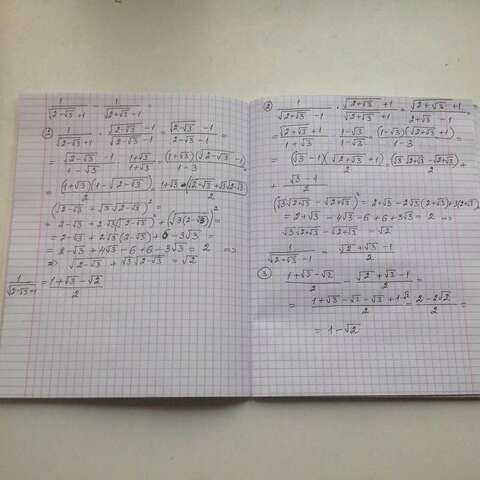 1/(√(2-√3)+1) - 1/(√(2+√3)-1) =
① 1/(√(2-√3)+1) · (√(2-√3)-1)/(√(2-√3)-1) = (√(2-√3)-1)/(2-√3-1) =
= (√(2-√3)-1)/(1-√3) · (1+√3)/(1+√3) = (1+√3)(√(2-√3)-1)/(1-3) =
= (1+√3)(1-√(2-√3))/2 = (1+√3-(√(2-√3)+√3√(2-√3)))/2
(√(2-√3)+√3√(2-√3))² =
= 2-√3+2√3(√(2-√3))²+(√3(2-√3))² =
= 2-√3+2√3(2-√3)+6-3√3 =
= 2-√3+4√3-6+6-3√3 = 2 =>
=> √(2-√3)+√3√(2-√3) = √2
1/(√(2-√3)+1) = (1+√3-√2)/2
② 1/(√(2+√3)-1) · (√(2+√3)+1)/(√(2+√3)+1) = (√(2+√3)+1)/(2+√3-1) =
= (√(2+√3)+1)/(1+√3) · (1-√3)/(1-√3) = (1-√3)(√(2+√3)+1)/(1-3) =
= (√3-1)(√(2+√3)+1)/2 = (√3√(2+√3)-√(2+√3))/2 +
+ (√3-1)/2
(√3√(2+√3)-√(2+√3))² = 2+√3-2√3(2+√3)+3(2+√3) =
= 2+√3-4√3-6+6+3√3 = 2 =>
√3√(2+√3)-√(2+√3) = √2
1/(√(2+√3)-1) = (√2+√3-1)/2
③ (1+√3-√2)/2 - (√2+√3-1)/2 =
= (1+√3-√2-√2-√3+1)/2 = (2-2√2)/2 =
= 1-√2